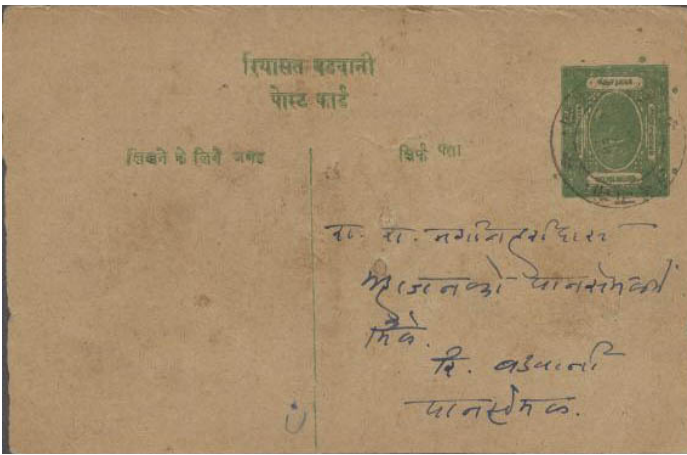 रियासत बडवानी
पोस्ट कार्ड
लिखने के लिये जगह
सिर्फ पता
रा. रा.
महाजनको पानसेमलमें
मिले.
रि. बडवानी
पानसेमल.